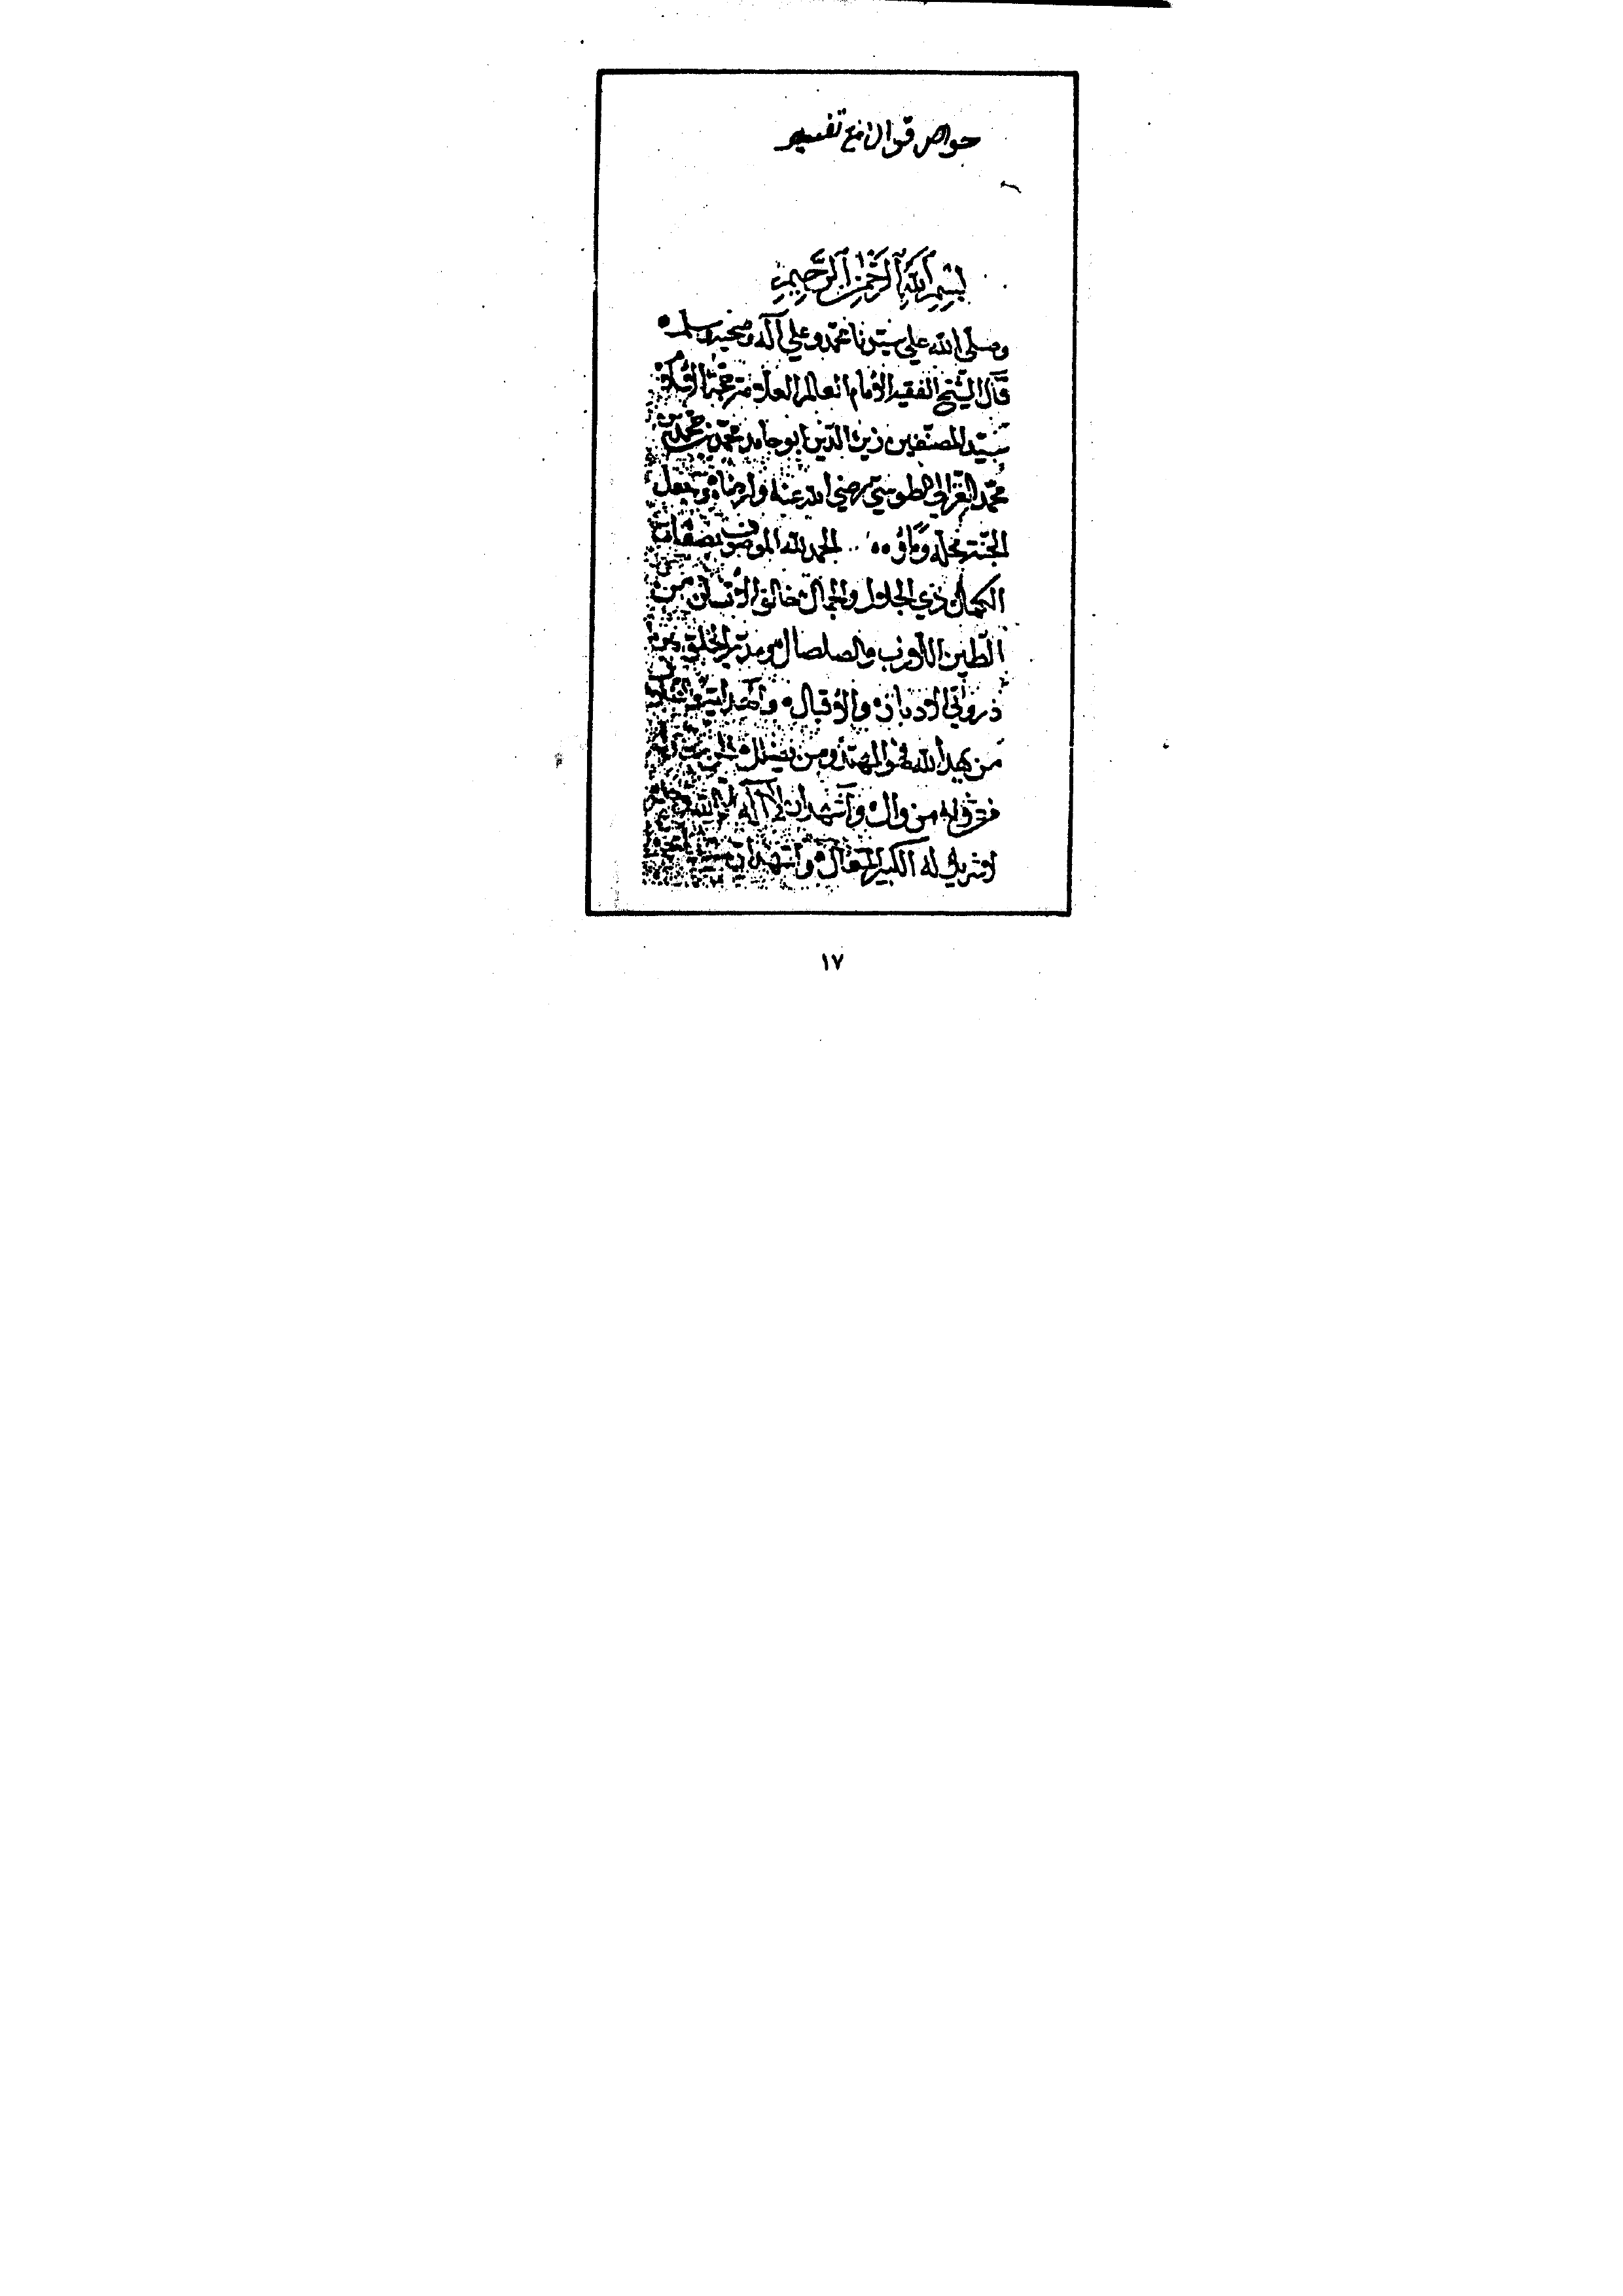 خواص قران مع تفسير
بسم الله الرحمن الرحيم
وصلي الله علي سيدنا محمد وعلي آله وصحبه وسلم
قال الشيخ الفقيه الامام العالم العلامة حجة الاسلام
سيد المصنفين زين الدين ابو حامد محمد بن محمد بن
محمد الغزالي الطوسي رضي الله عنه وارضاه وجعل
الجنة محله ومأواه الحمد لله الموصوف بصفات
الكمال ذي الجلال والجمال خالق الانسان من
الطين اللازب والصلصال ومدبر الخلق
الادبار والاقبال
من يهد الله فهو المهتد ومن يضلل
من وال واشهد ان لا اله الا الله وحده
لا شريك له الكبير المتعال واشهد ان
١٧